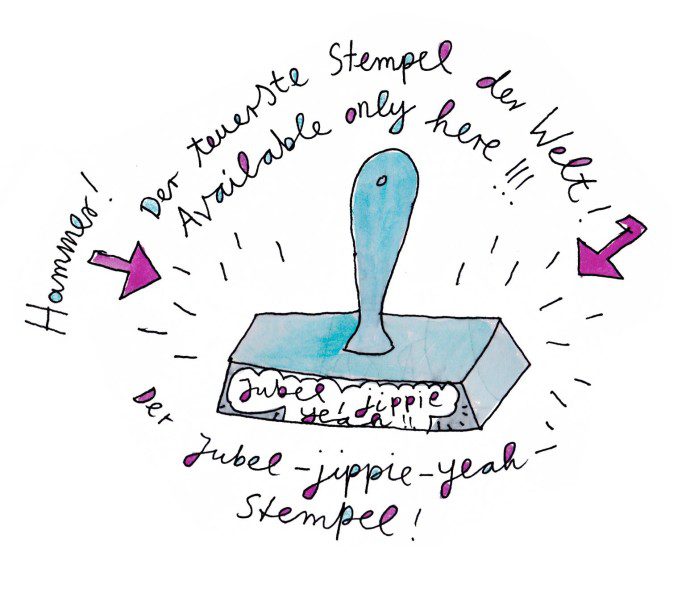 Hammer!
Der teuerste Stempel der Welt!
Available only here!!!
Jubel jippie
yeah!!
Der Jubel-jippie-yeah-
Stempel!